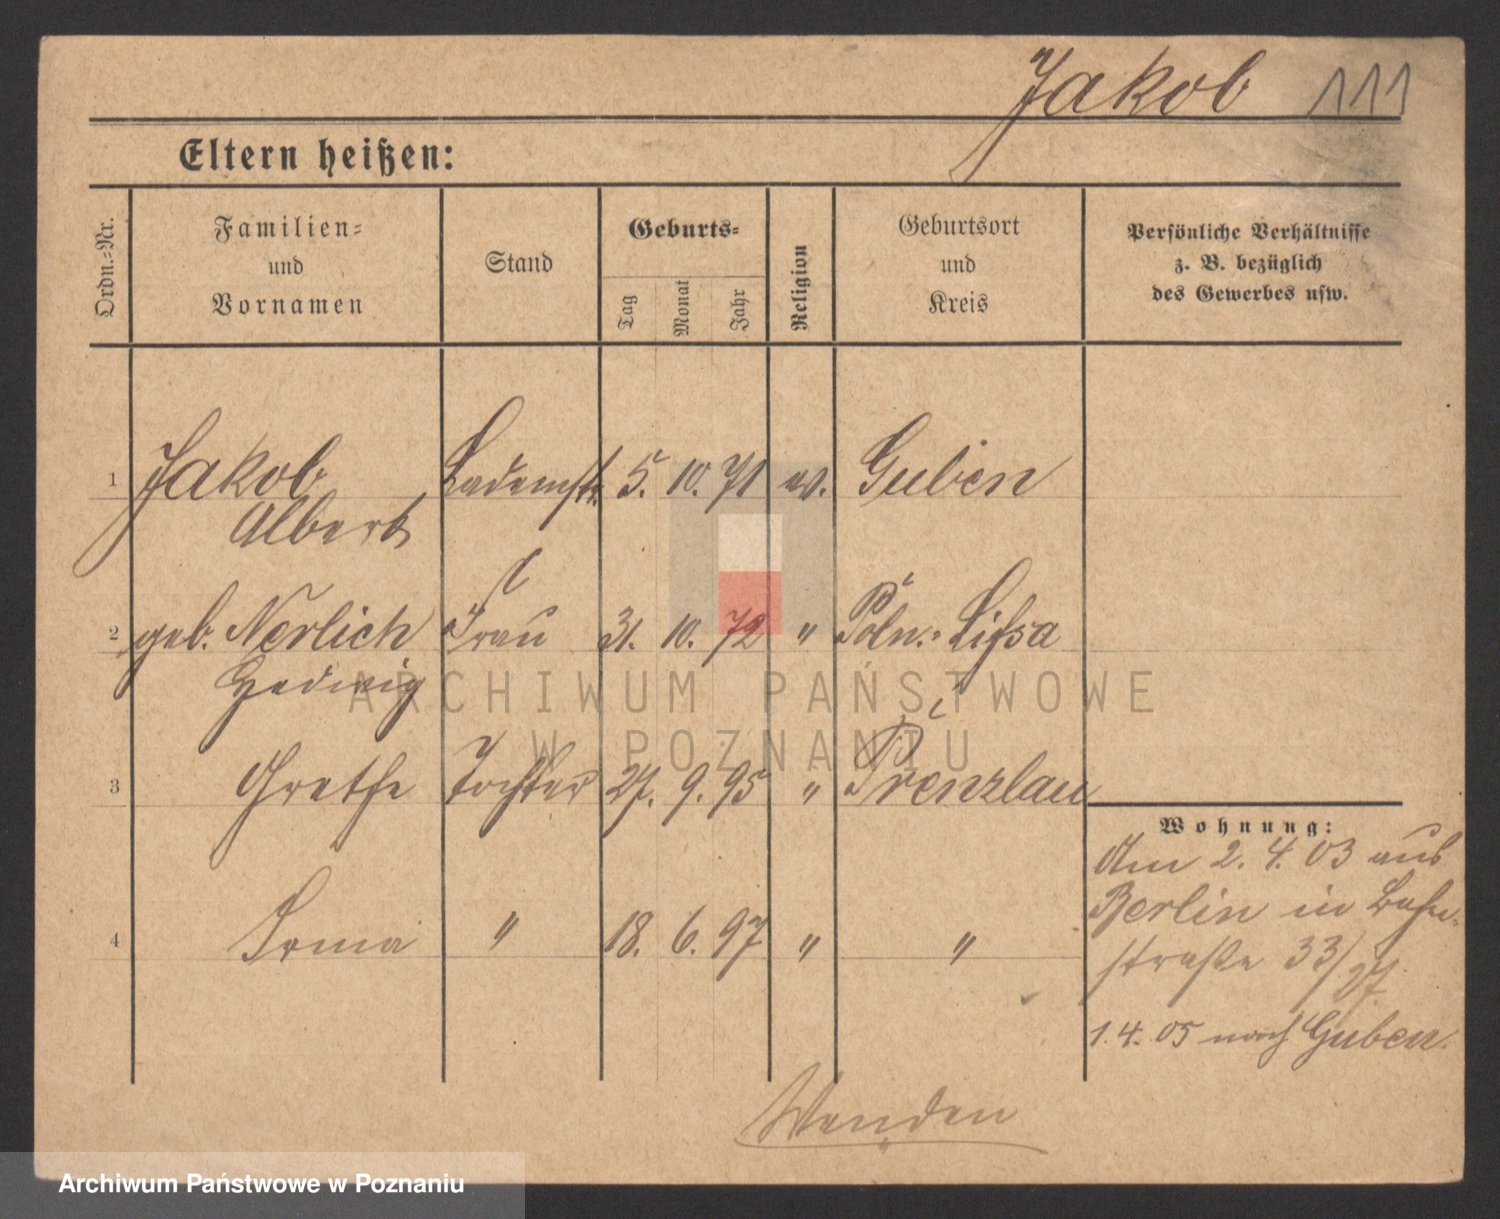 Jakob 111
Eltern heißen:
Ordn.-Nr.
Familien-
und
Vornamen
Stand
Geburts-
Tag
Monat
Jahr
Religion
Geburtsort
und
Kreis
Persönliche Verhältnisse
z. B. bezüglich
des Gewerbes usw.
1 Jakob Lademstr. 5. 10. 71 ev. Guben
Albert
2 geb. Nerlich Frau 31. 10. 72 " Poln.-Lissa
Hedwig
3 Grethe Tochter 27. 9. 95 " Prenzlau
4 Irma " 18. 6. 97 " "
Wohnung:
Am 2. 4. 03 aus
Berlin in Bahn-
straße 33/27.
1. 4. 05 nach Guben.
Wenden
ARCHIWUM PAŃSTWOWE
W POZNANIU
Archiwum Państwowe w Poznaniu